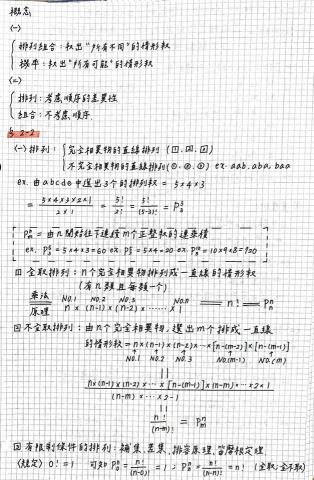 概念
(一)
排列組合:取出"所有不同"的情形數
機率:取出"所有可能"的情形數
(二)
排列:考慮順序的差異性
組合:不考慮順序.
§ 2-2
(一) 排列: 完全相異物的直線排列 (①.②.③)
不完全相異物的直線排列 ex. aab, aba, baa
ex. 由 abcde 中選出3個的排列數 = 5×4×3
= 5×4×3×2×1 / 2×1 = 5! / 2! = 5! / (5-3)! = P⁵₃
Pⁿₘ = 由 n 開始往下連續 m 個正整數的連乘積
ex. P⁵₃ = 5×4×3=60 ex. P⁵₂ = 5×4=20 ex. P¹⁰₃ = 10×9×8=720
① 全取排列: n個完全相異物排列成一直線的情形數
(有 n 類且每類一個)
乘法原理 No.1 No.2 No.3 No.n
n × (n-1) × (n-2) × ⋯⋯ × 1 = n! = Pⁿₙ
② 不全取排列: 由n個完全相異物, 選出m個排成一直線
的情形數 = n×(n-1)×(n-2)×⋯×[n-(m-2)]×[n-(m-1)]
No.1 No.2 No.3 No.(m-1) No.(m)
||
n×(n-1)×(n-2)×⋯×[n-(m-1)]×(n-m)×⋯×2×1
(n-m)×⋯×2×1
||
n! / (n-m)! = Pⁿₘ
③ 有限制條件的排列: 補集.差集.排容原理.笛摩根定理
<規定> 0! = 1 可知 Pⁿ₀ = n! / (n-0)! = 1 ; Pⁿₙ = n! / (n-n)! = n! (全取,全不取)